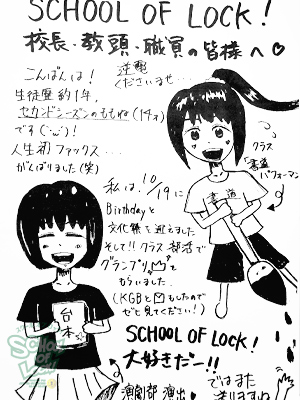 SCHOOL OF LOCK!
校長・教頭・職員の皆様へ♡
こんばんは!
逆電
くださいませ…
生徒歴約1年、
セカンドシーズンのももね(14才)
です(˙ᴗ˙)!
人生初ファックス…
がんばりました(笑)
クラス
"書道
パフォーマン
書道
私は、10/19に
Birthdayと
文化祭を迎えました
そして!!クラス部活で
グランプリ
もらいました。
(KGBと
もしたので
ぜひ見てください!)
台本
SCHOOL OF LOCK!
大好きだー!!
演劇部 演出
ではまた
送りますね
SCHOOL OF LOCK!